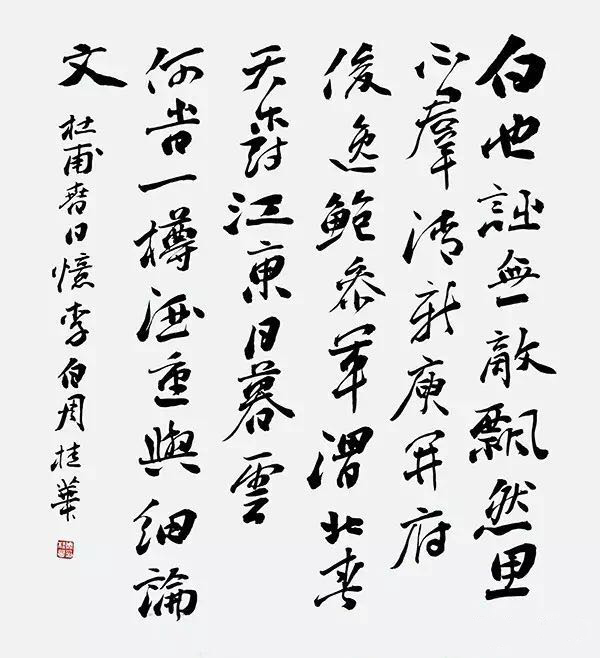 白也詩無敵飄然思
不羣清新庾開府
俊逸鮑参軍渭北春
天樹江東日暮雲
何旹一樽酒重與細論
文
杜甫春日憶李白周桂華